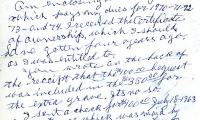 Am enclosing
which pays my dues for 1970-71-72
73-and 74. I received the Certificate
of Ownership, which I should
have gotten four years ago,
as I was entitled to
wrote on the back of
the receipt that the $100.00 request
was included in the $350.00 for
the extra grave. Its no so.
I sent a check for $100.00 July 18-1963
which was mark